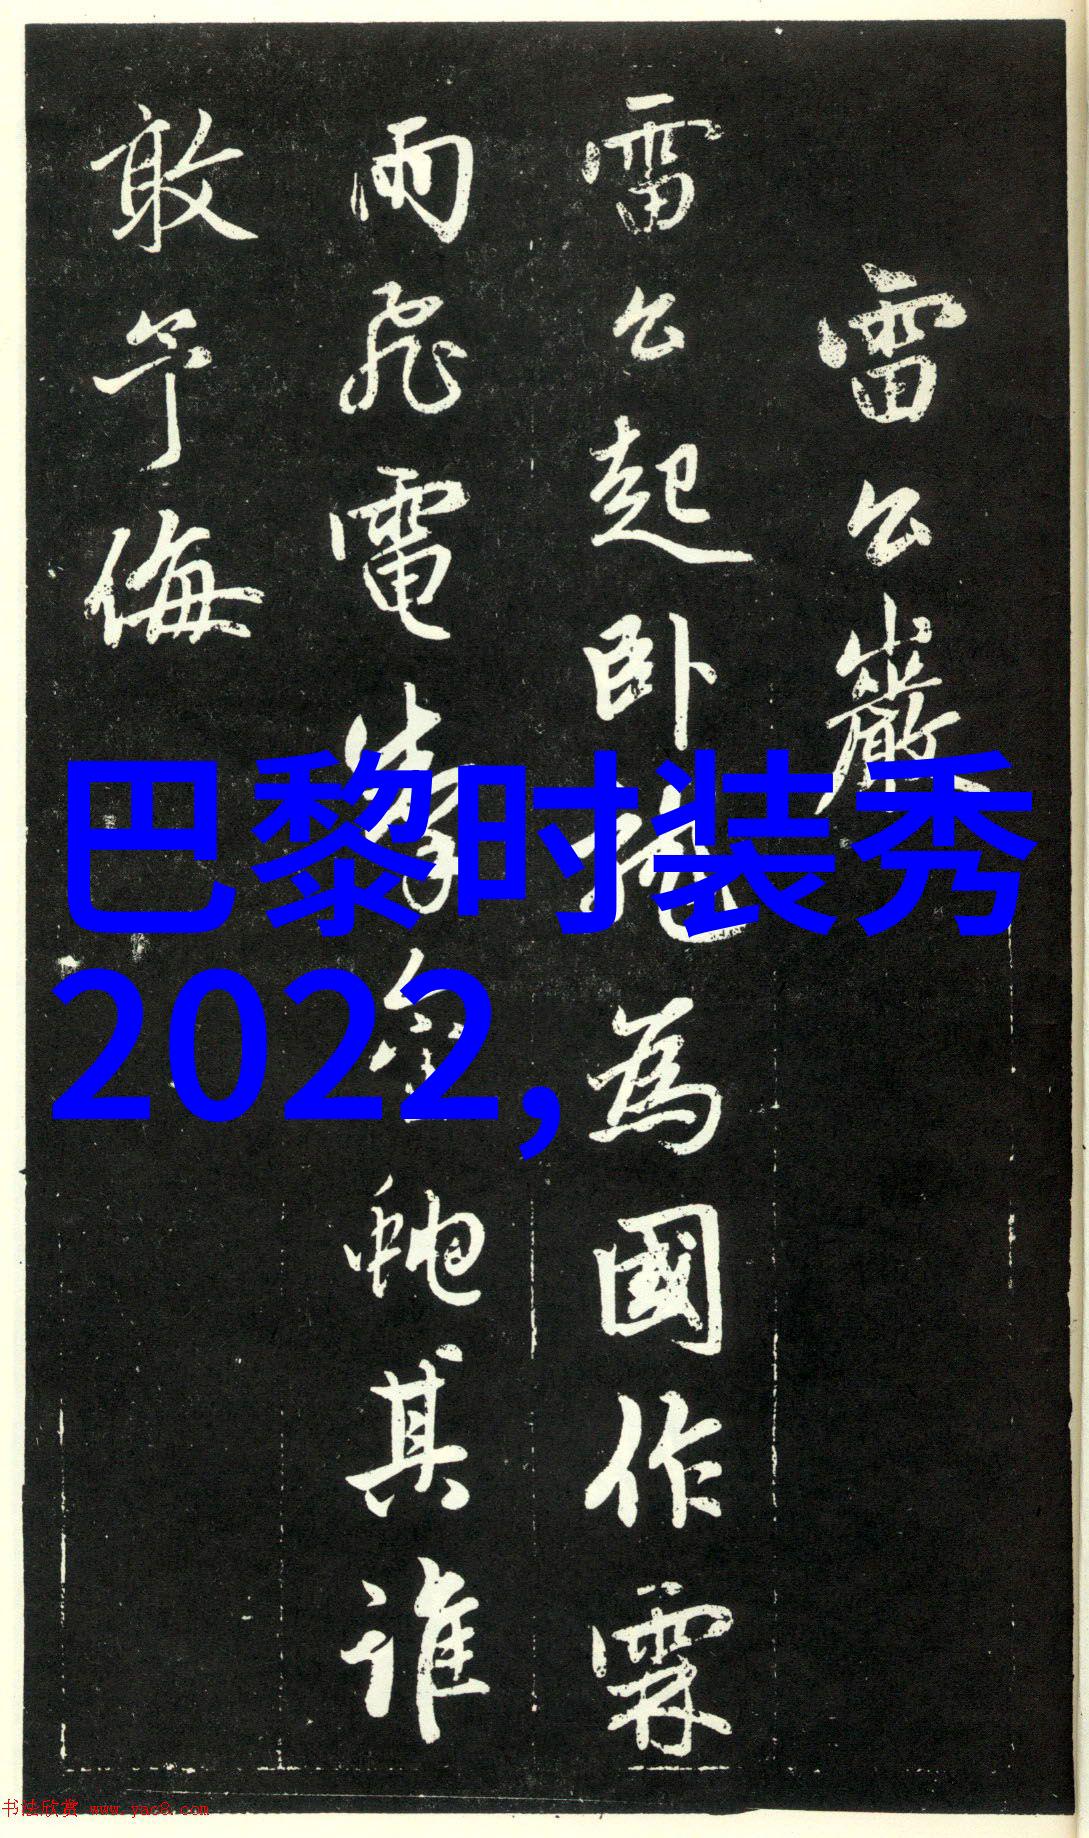 雷公巖
雷公起卧 為國作霖
雨飛電 蛇其誰
敢予侮
巴黎时装秀
2022,
书法欣赏 www.yac8.com